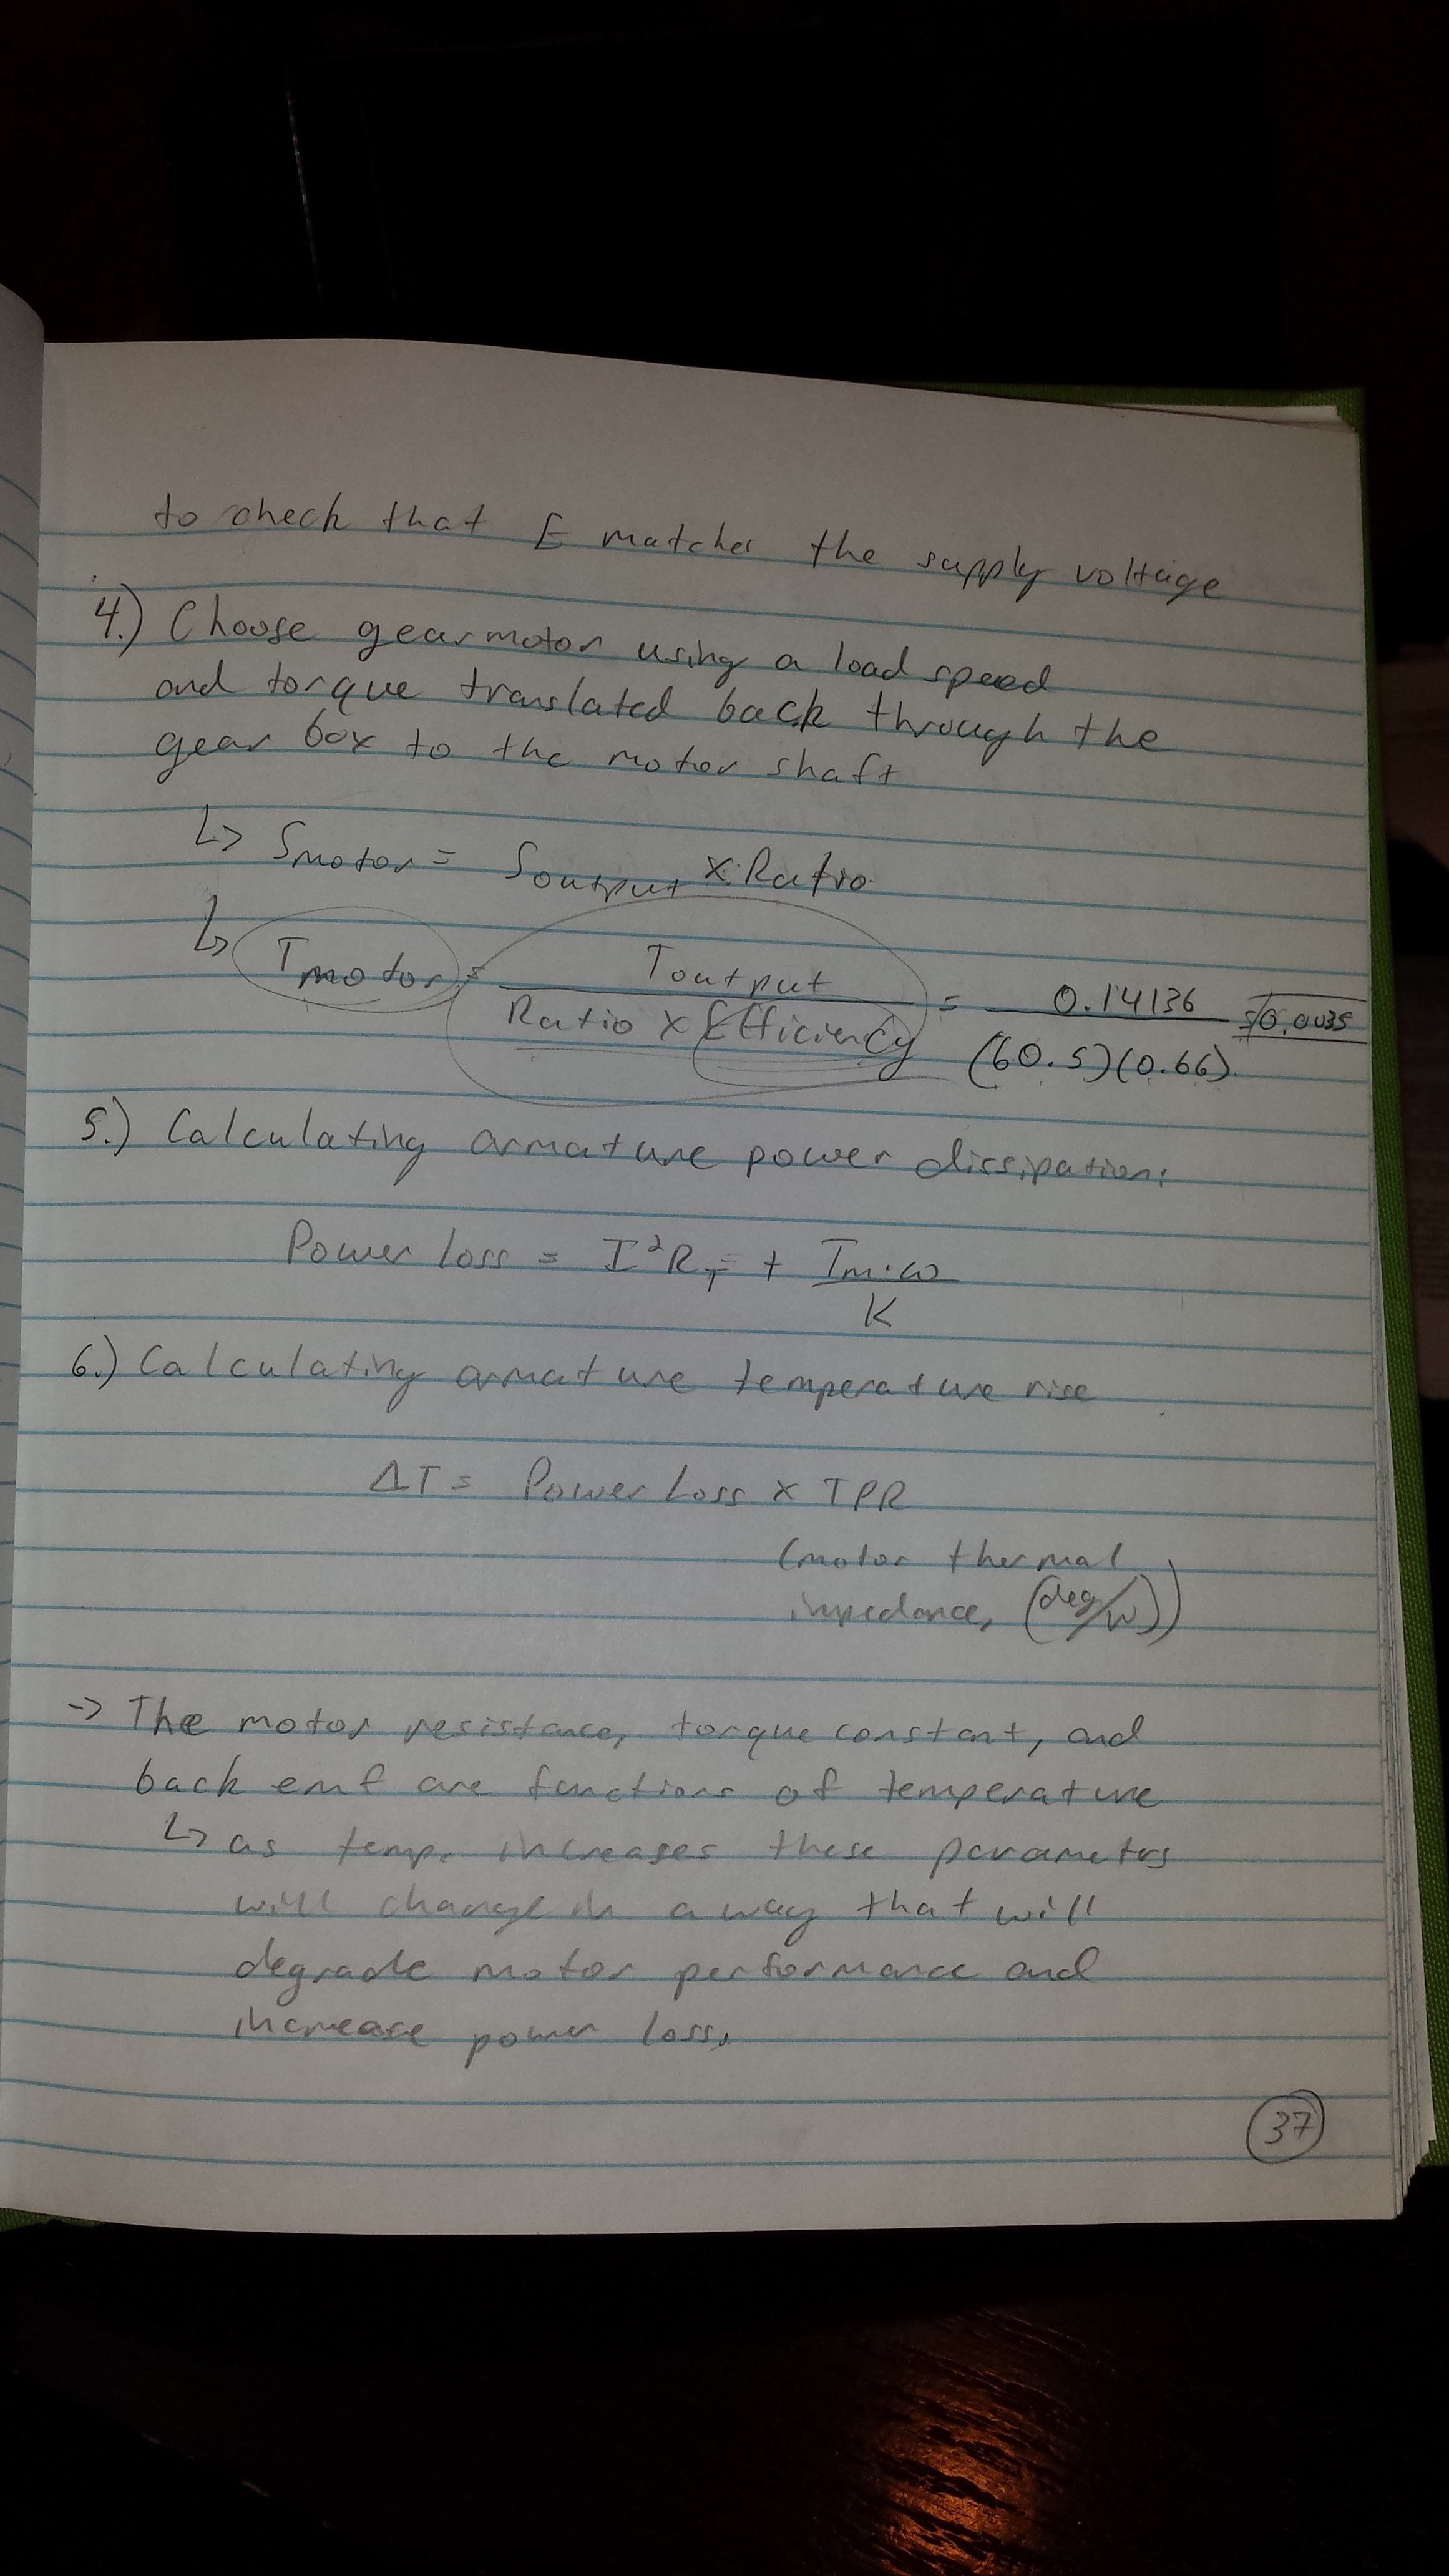 to check that E matches the supply voltage
4.) Choose gearmotor using a load speed
and torque translated back through the
gear box to the motor shaft
↳ Smotor = Soutput x Ratio
↳ Tmotor = Toutput / Ratio x Efficiency = 0.14136 / (60.5)(0.66) = 0.0035
5.) Calculating armature power dissipation:
Power loss = I²R_T + Tm·ω / K
6.) Calculating armature temperature rise
ΔT = Power Loss x TPR
(motor thermal
impedance, (deg/W))
-> The motor resistance, torque constant, and
back emf are functions of temperature
↳ as temp. increases these parameters
will change in a way that will
degrade motor performance and
increase power loss.
37